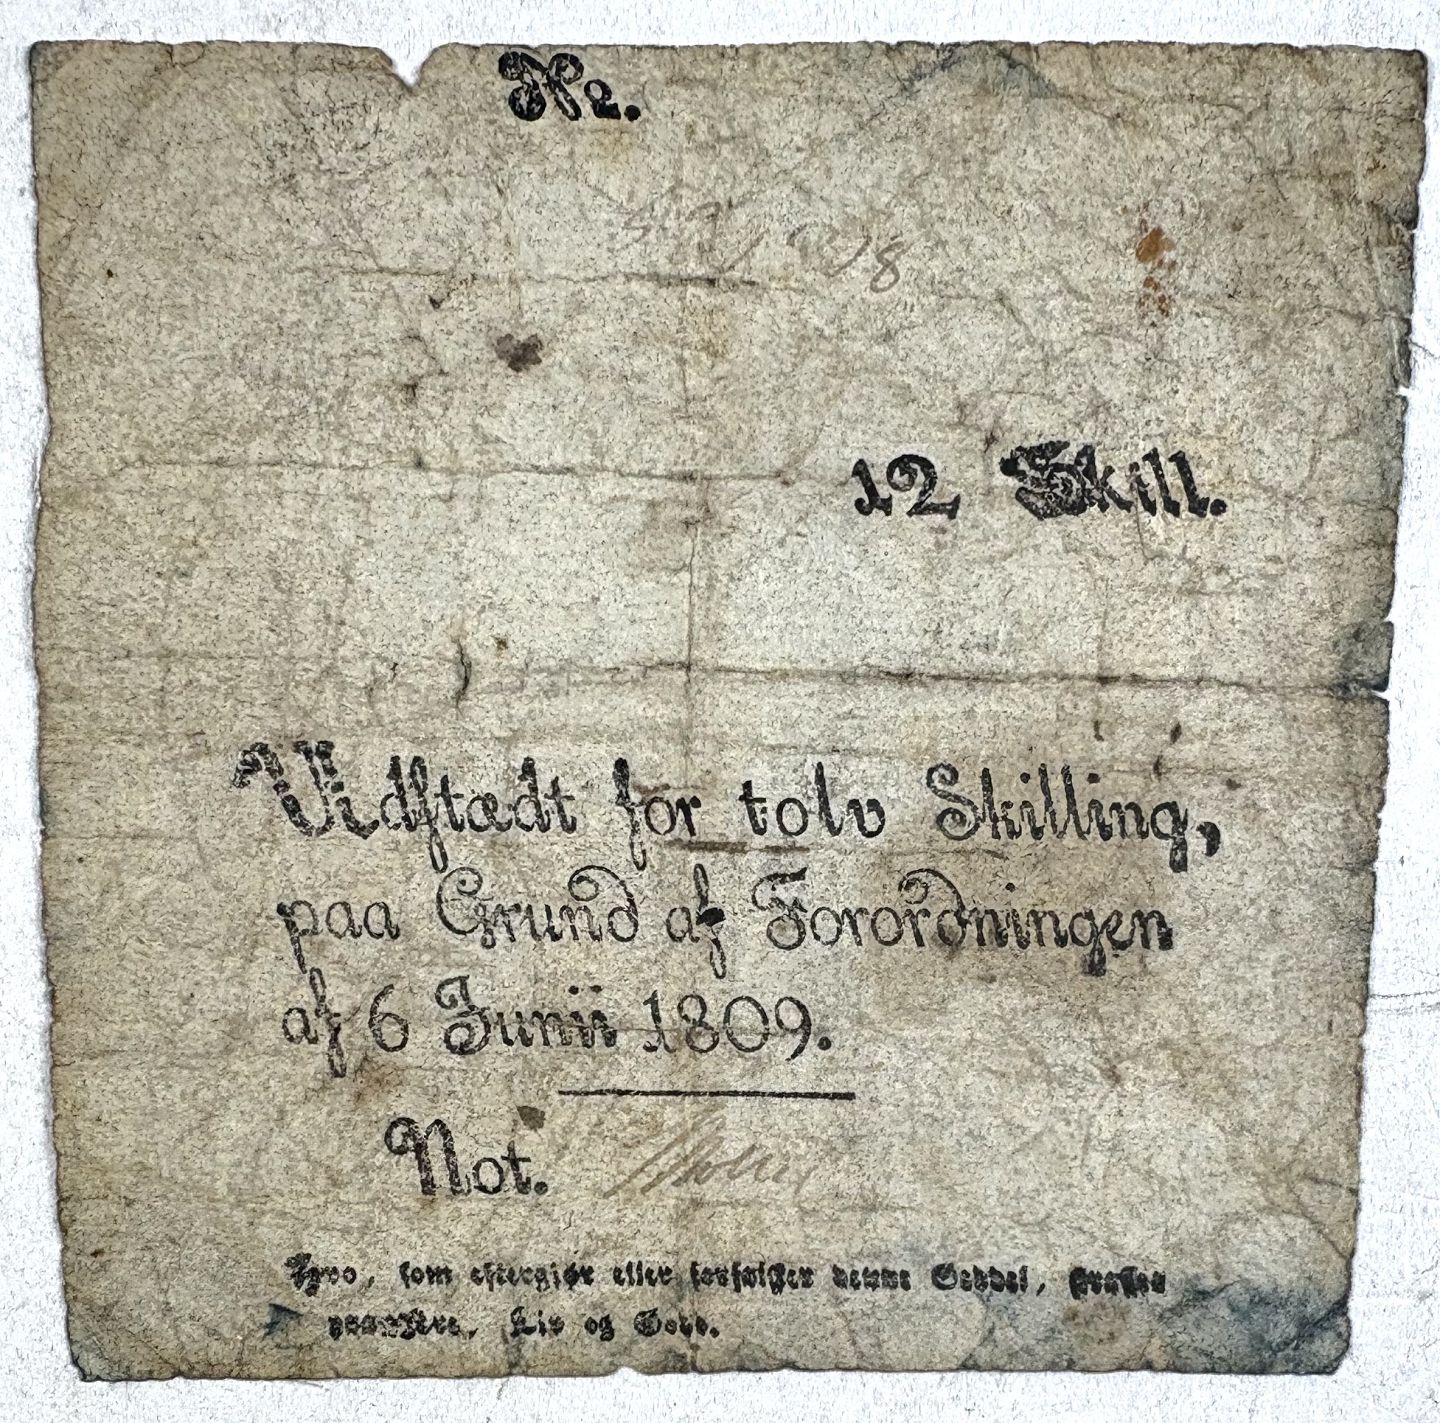 No.
12 Skill.
Udstædt for tolv Skilling,
paa Grund af Forordningen
af 6 Junii 1809.
Not.
Hvo, som eftergiør eller forfalsker denne Seddel, straffes
paa Ære, Liv og Gods.